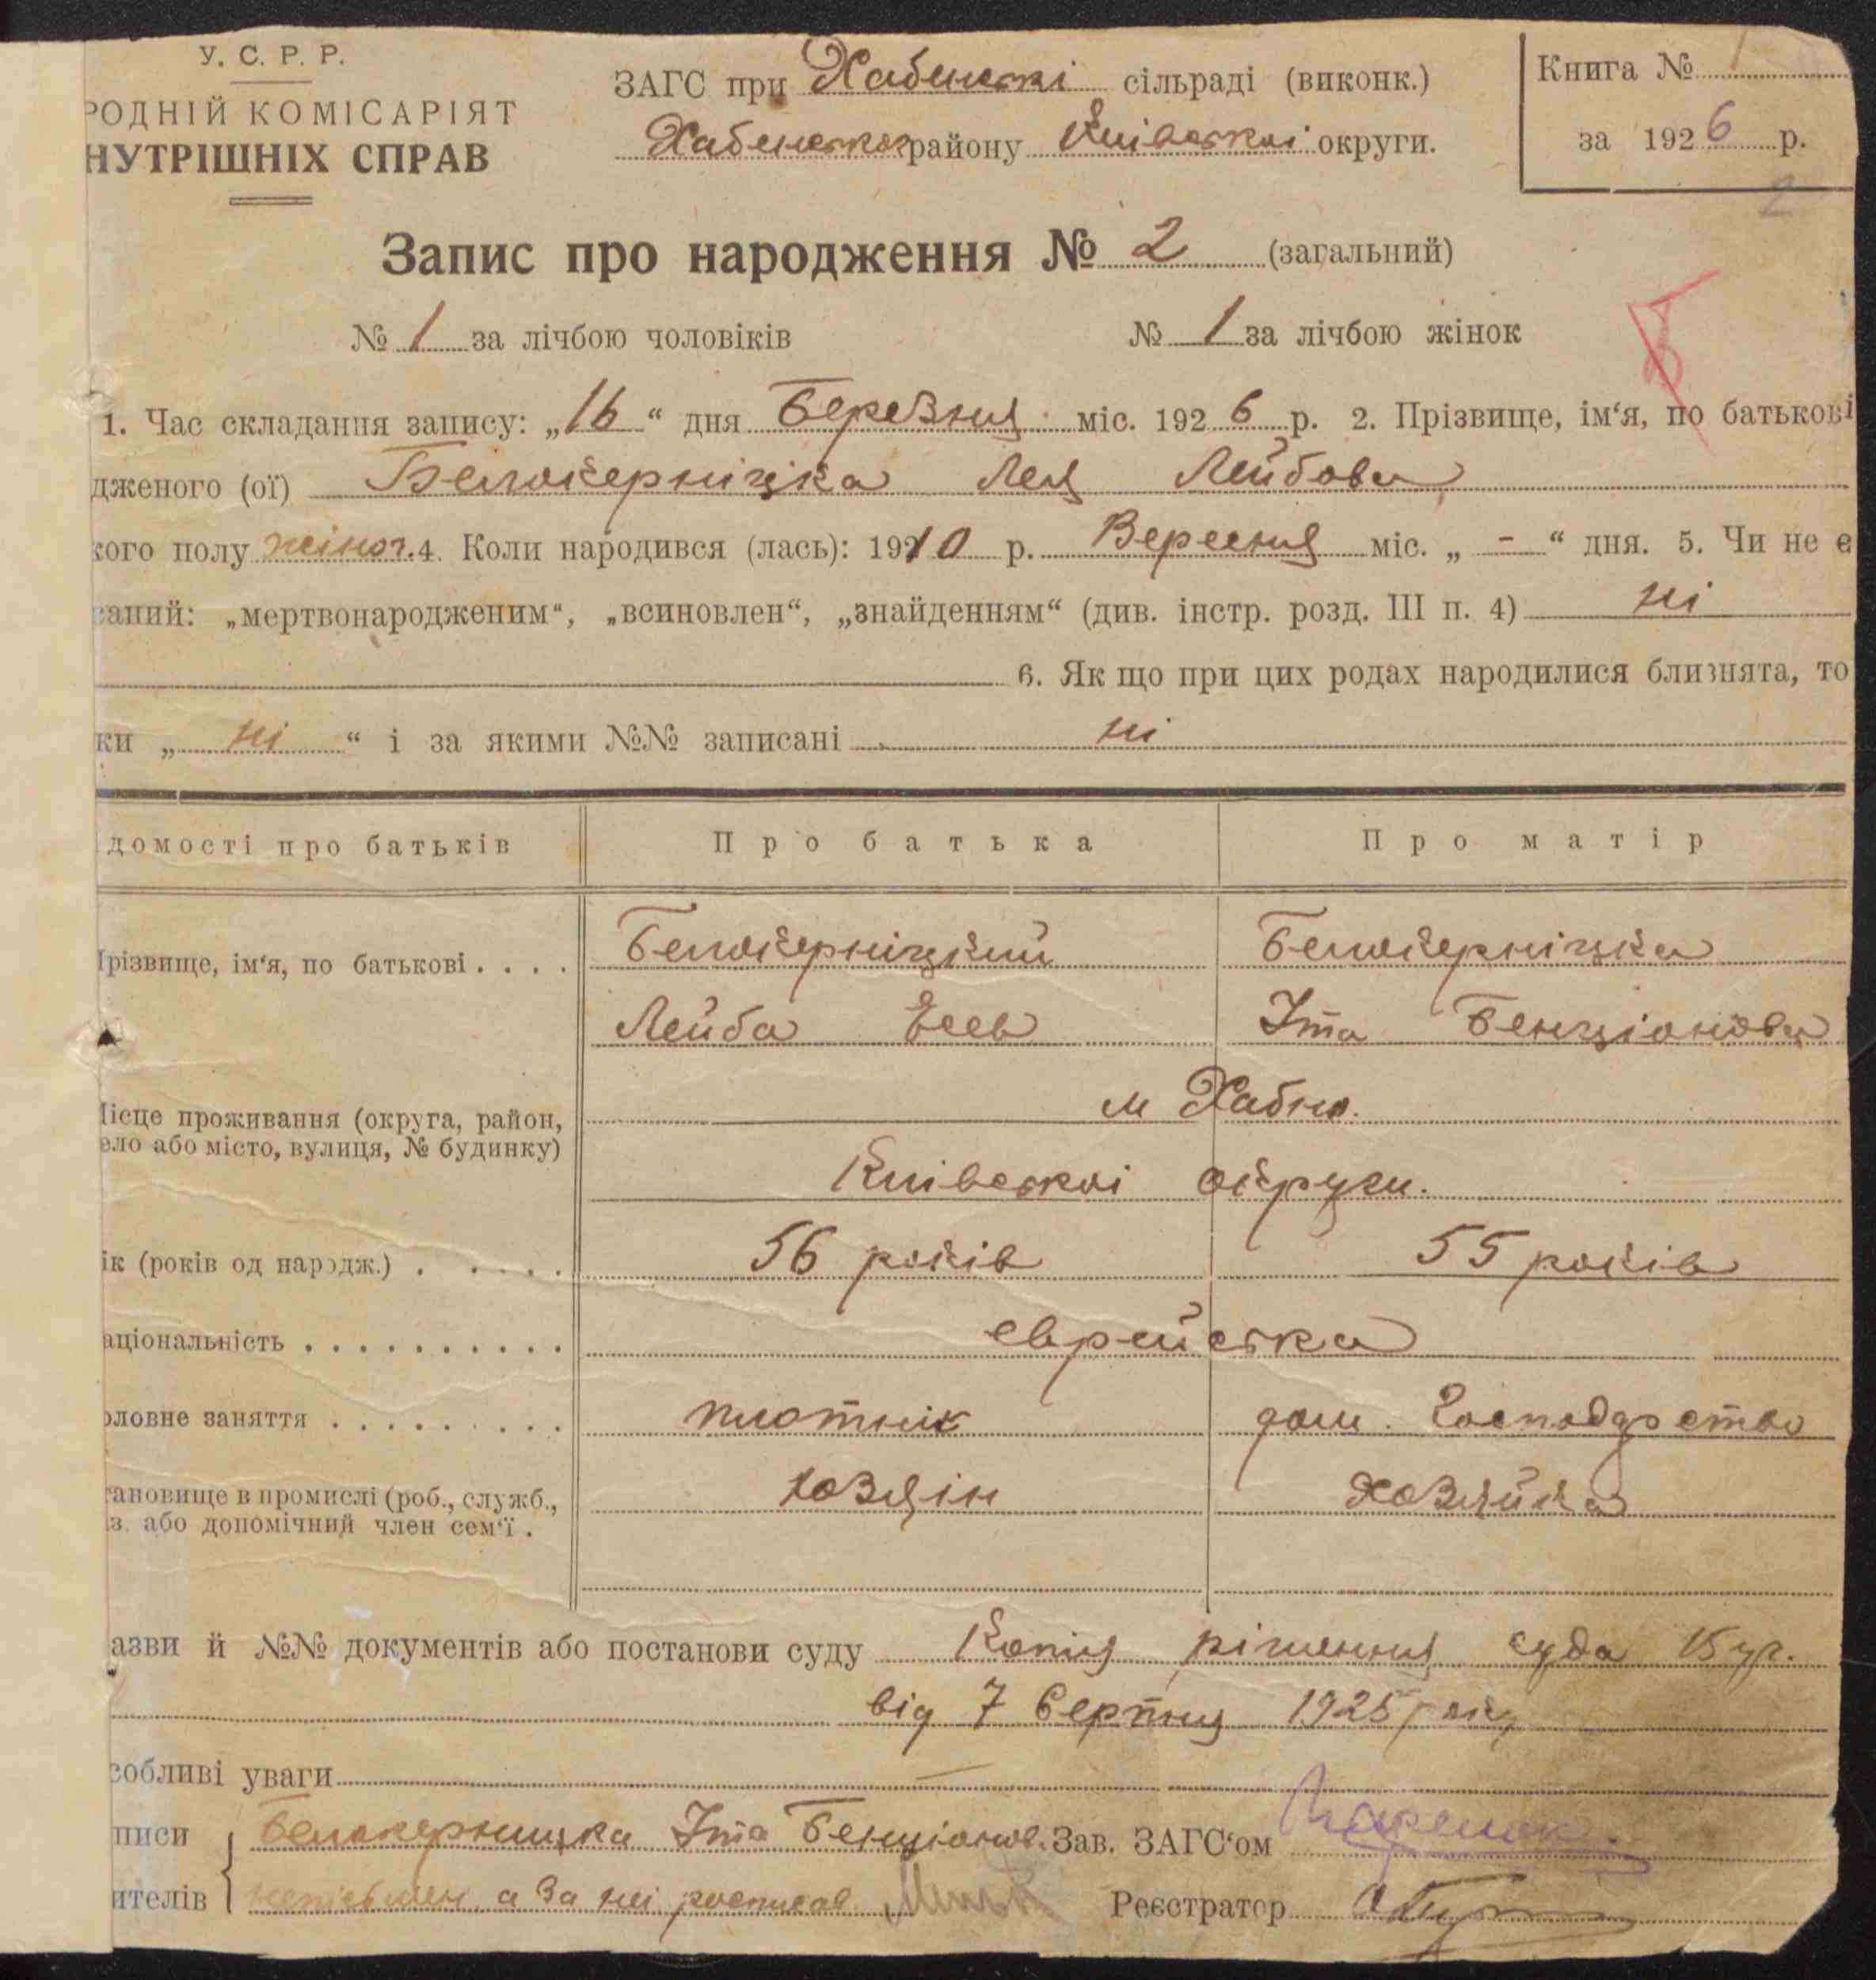 У. С. Р. Р.
РОДНІЙ КОМІСАРІЯТ
НУТРІШНІХ СПРАВ
ЗАГС при Хабенскі сільраді (виконк.)
Хабенског району Київскоі округи.
Книга № 1
за 1926 р.
2
Запис про народження № 2 (загальний)
№ 1 за лічбою чоловіків № 1 за лічбою жінок
1. Час складання запису: „16“ дня Березня міс. 1926 р. 2. Прізвище, ім‘я, по батькові
дженого (ої) Белокерніцка Лея Лейбова
кого полу жіноч. 4. Коли народився (лась): 1910 р. Вересня міс. „ - “ дня. 5. Чи не є
саний: „мертвонародженим“, „всиновлен“, „знайденням“ (див. інстр. розд. III п. 4) ні
6. Як що при цих родах народилися близнята, то
ки „ ні “ і за якими №№ записані ні
домості про батьків Про батька Про матір
Прізвище, ім‘я, по батькові . . . . Белокерніцкий Белокерніцка
Лейба Єсев Іта Бенціонова
Місце проживання (округа, район, м Хабно.
ело або місто, вулиця, № будинку)
Київскоі округи.
ік (років од народж.) . . . . . 56 років 55 років
аціональність . . . . . . . . . . еврейска
оловне заняття . . . . . . . . . плотнік дом. Господарство
тановище в промислі (роб., служб., хозяін хозяйка
з. або допомічний член сем‘ї .
азви й №№ документів або постанови суду Копія рішення суда 15 уч.
від 7 Серпня 1925 року
собливі уваги —
писи Белокерницка Іта Бенціонов. Зав. ЗАГС‘ом
ителів непісьмен, а за неі росписав Реєстратор